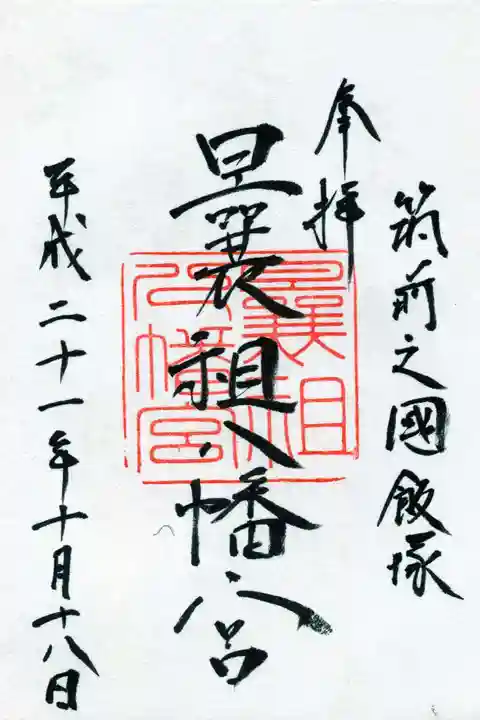 筑前之國飯塚
奉拝
曩祖八幡宮
平成二十一年十月十八日
曩祖
八幡宮